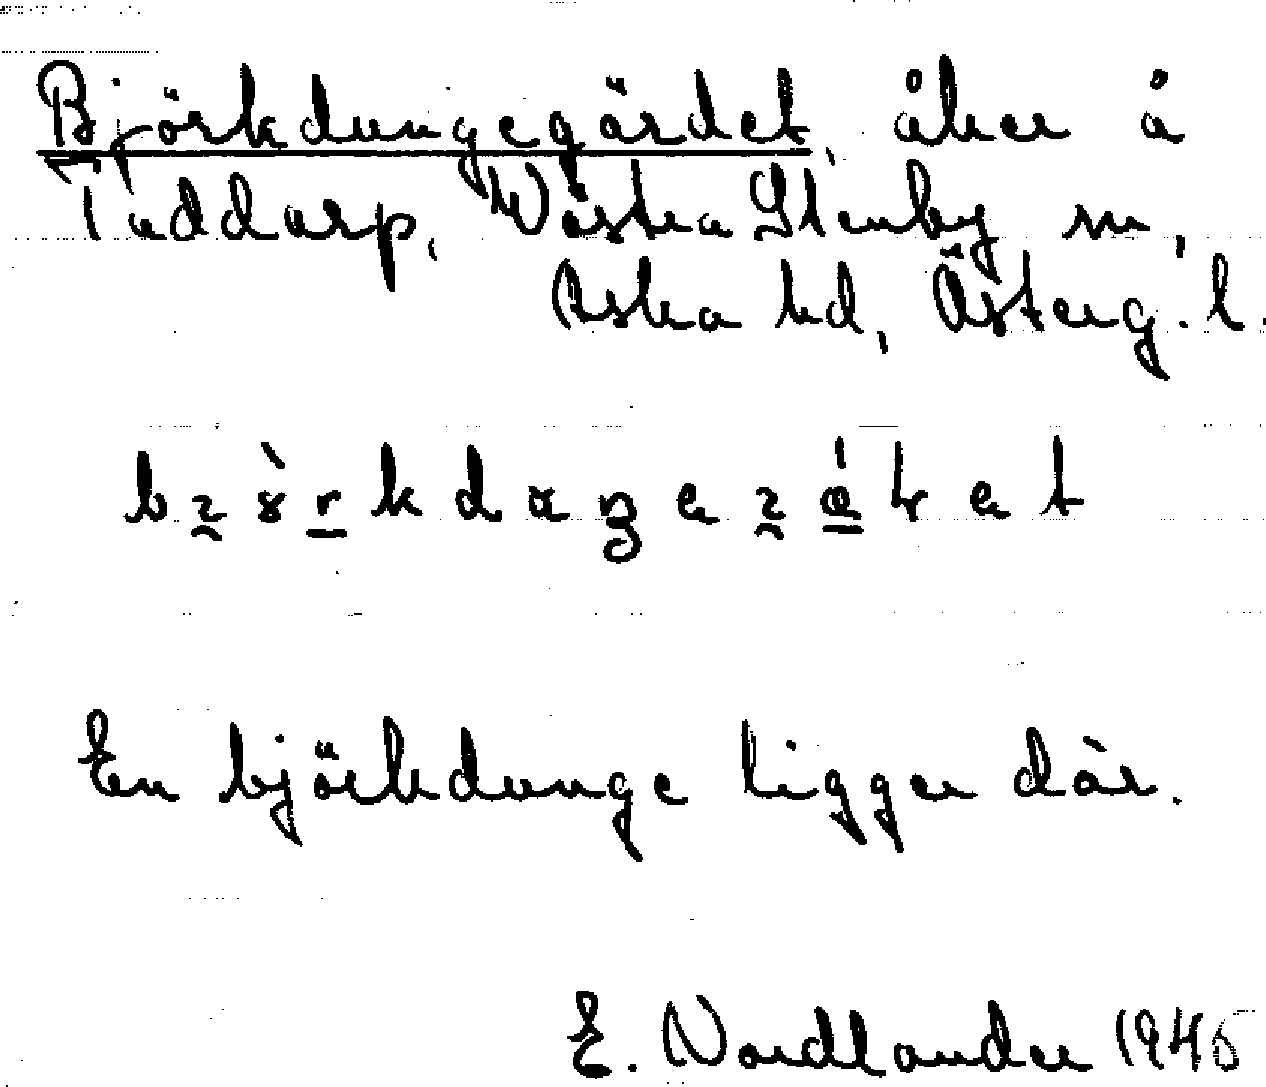 Björkdungegärdet, åker å
Taddorp, Västra Stenby sn,
Aska hd, Österg. l.
En björkdunge ligger där.
E. Nordlander 1945